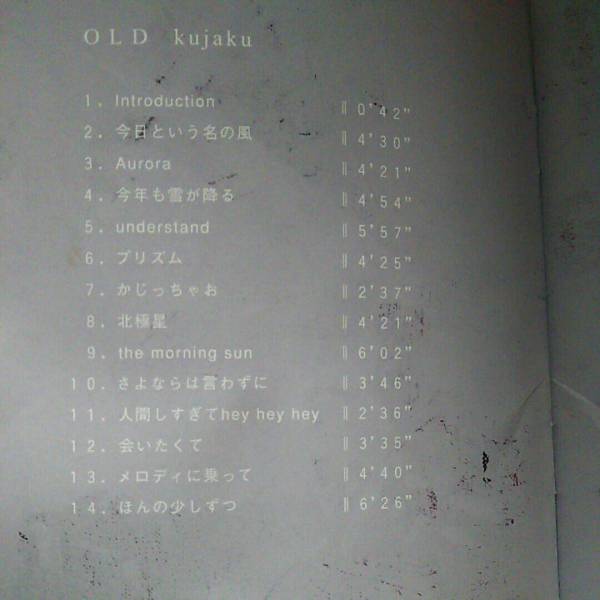 OLD kujaku
1. Introduction ‖ 0'42"
2. 今日という名の風 ‖ 4'30"
3. Aurora ‖ 4'21"
4. 今年も雪が降る ‖ 4'54"
5. understand ‖ 5'57"
6. プリズム ‖ 4'25"
7. かじっちゃお ‖ 2'37"
8. 北極星 ‖ 4'21"
9. the morning sun ‖ 6'02"
10. さよならは言わずに ‖ 3'46"
11. 人間しすぎてhey hey hey ‖ 2'36"
12. 会いたくて ‖ 3'35"
13. メロディに乗って ‖ 4'40"
14. ほんの少しずつ ‖ 6'26"